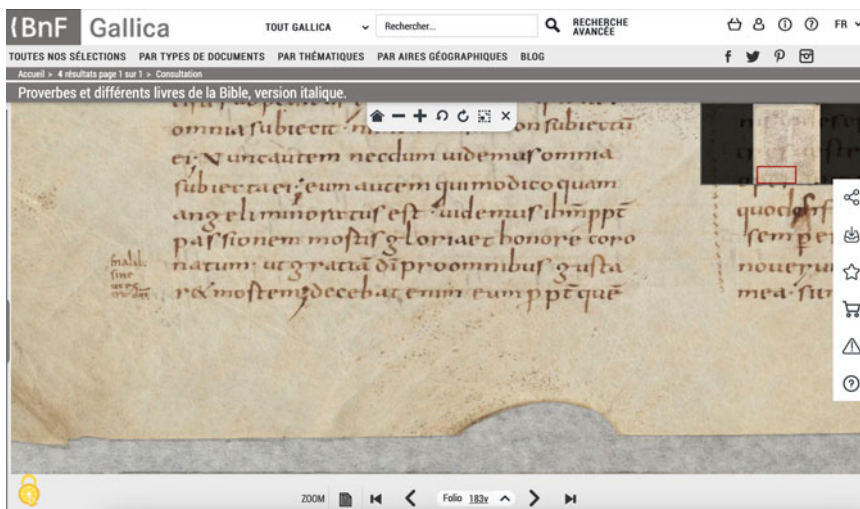 (BnF Gallica
TOUT GALLICA
Rechercher...
RECHERCHE AVANCÉE
FR
TOUTES NOS SÉLECTIONS PAR TYPES DE DOCUMENTS PAR THÉMATIQUES PAR AIRES GÉOGRAPHIQUES BLOG
Accueil > 4 résultats page 1 sur 1 > Consultation
Proverbes et différents livres de la Bible, version italique.
omnia subiecit on subiectū
ei· Nunc autem necdum uidemus omnia
subiecta ei; eum autem qui modico quam
angeli minoratus est · uidemus ihm ppt
passionem mortis gloria et honore coro
natum· ut gratiā dī pro omnibus gusta
ret mortem; decebat enim eum ppt quē
in alib.
sine
quod
semper
mea· su
ZOOM
Folio 183v